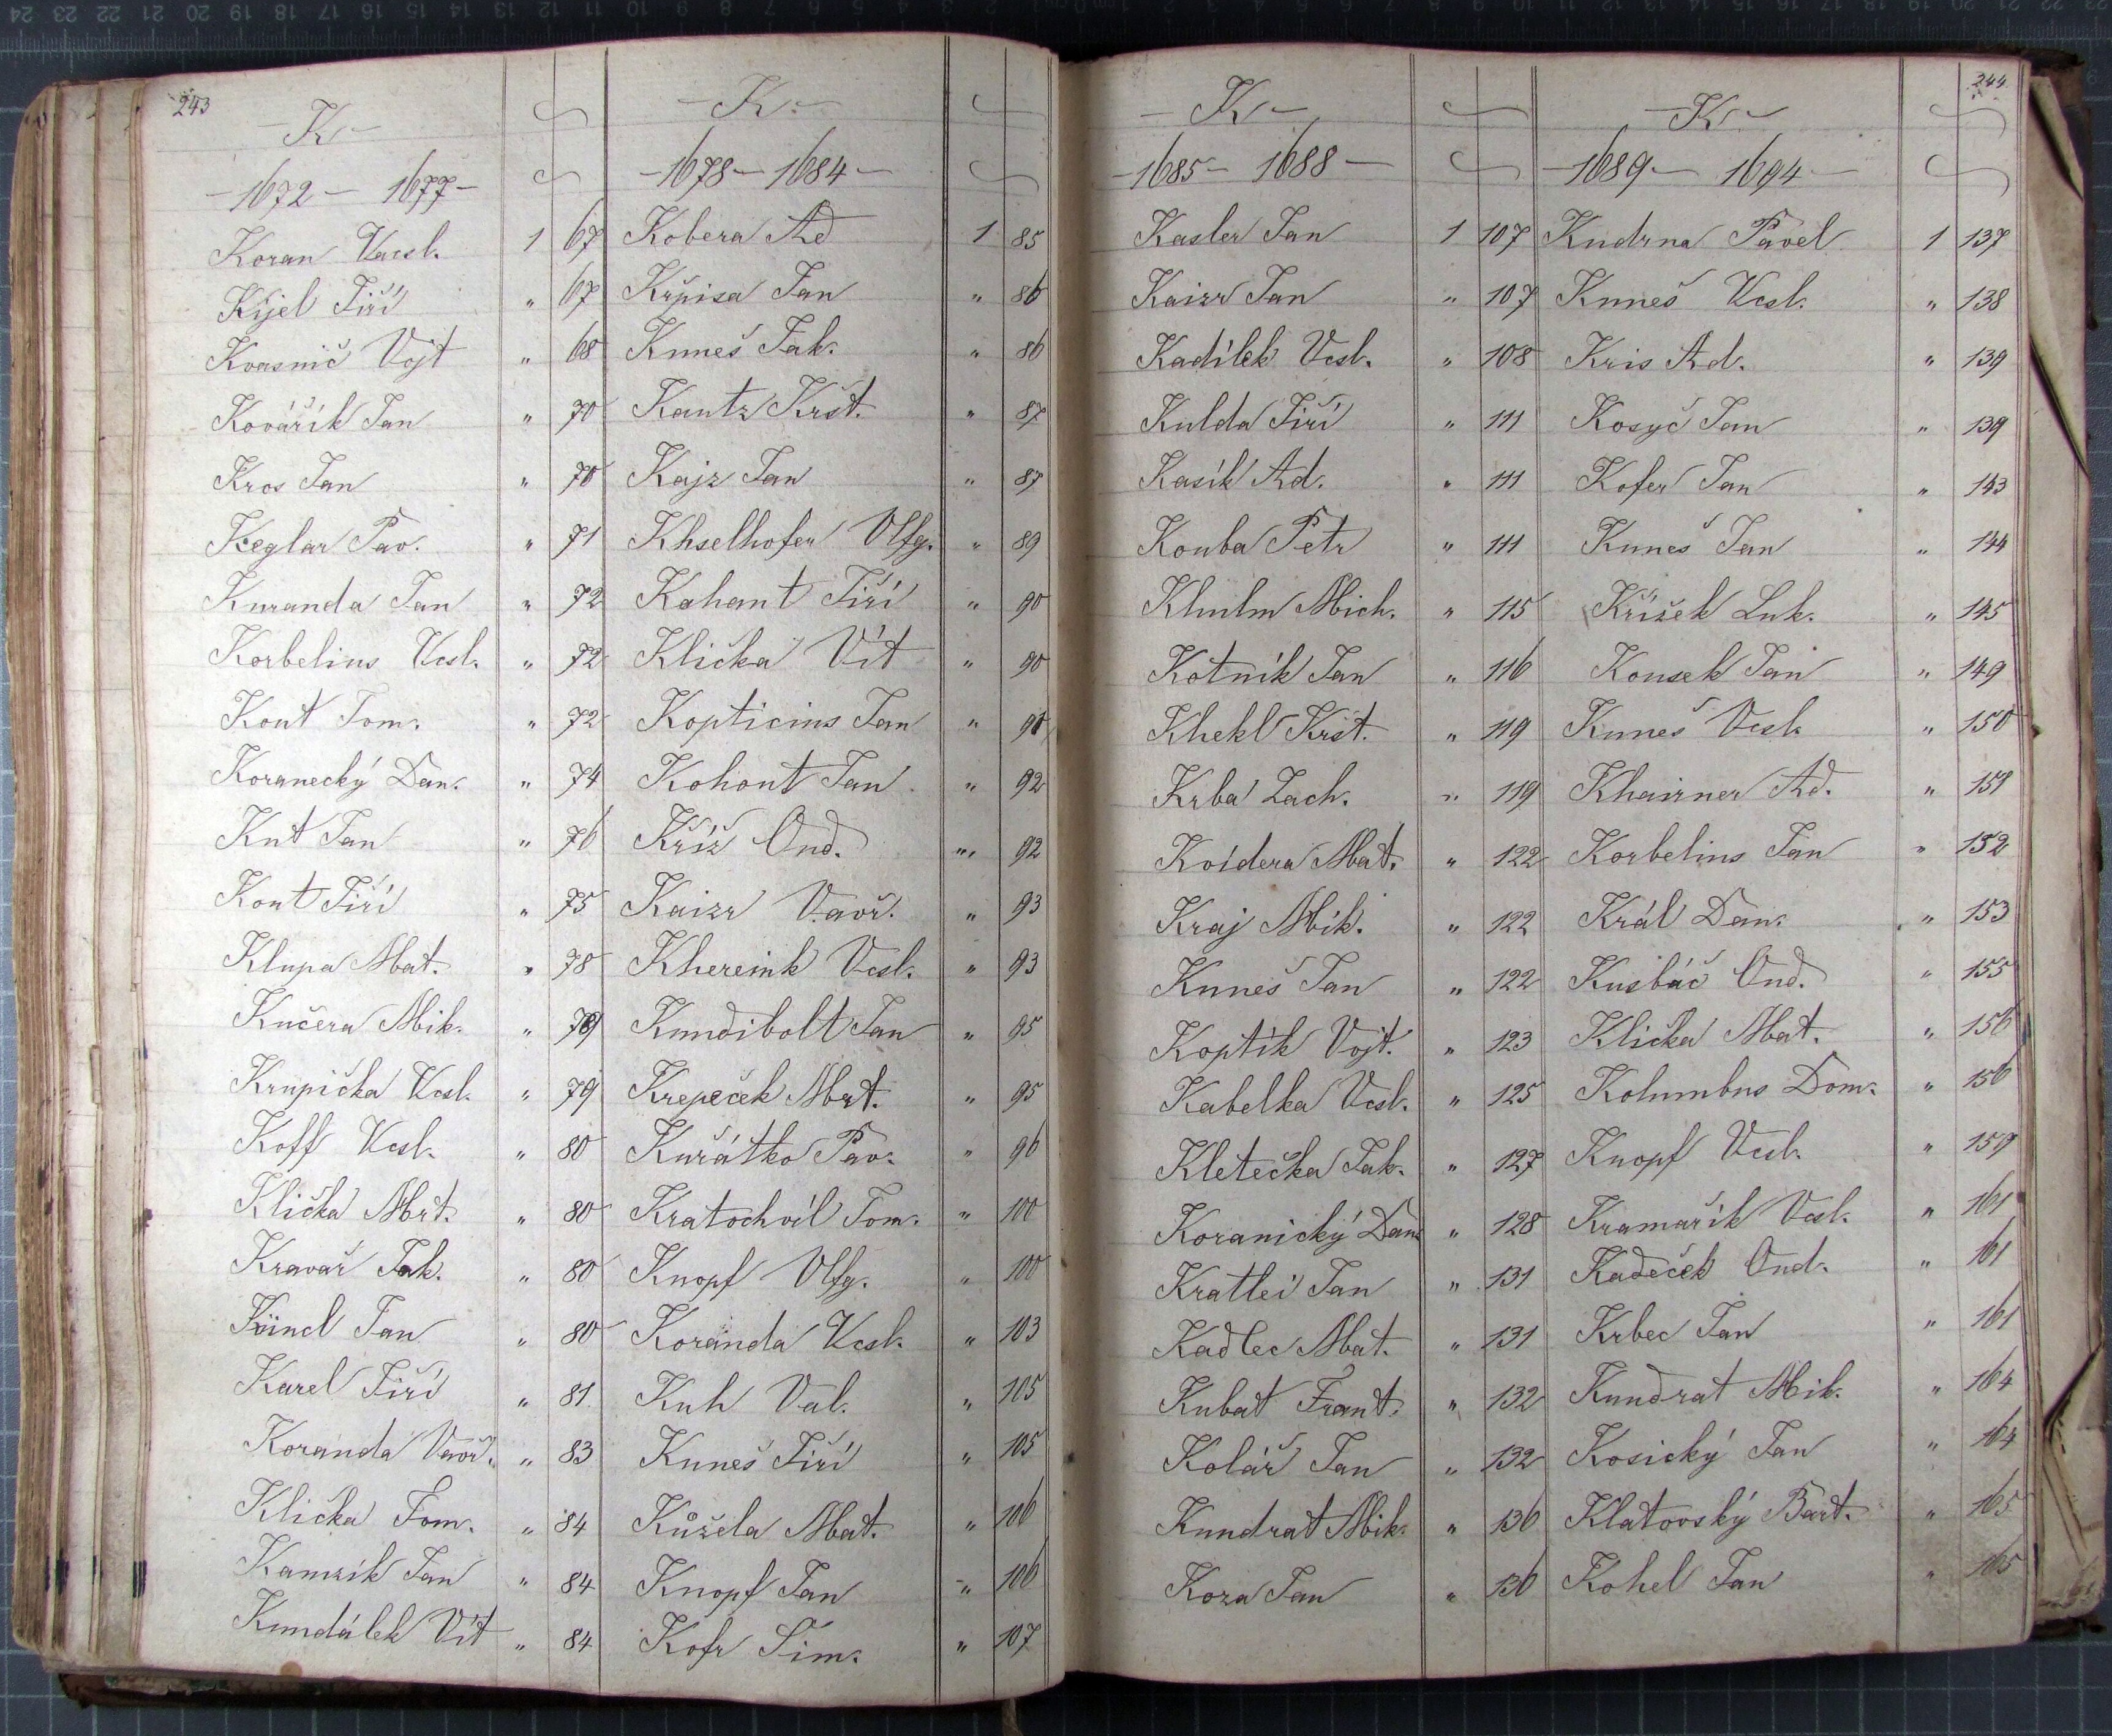 243
K
1672 - 1677
Koran Vacsl. 1 67
Kijel Jiří " 67
Kvasnič Vojt " 68
Kovářík Jan " 70
Kros Jan " 70
Keglar Pav. " 71
Kuranda Jan " 72
Korbelius Vcsl. " 72
Kout Tom. " 72
Koranecký Dan. " 74
Knt Jan " 76
Kout Jiří " 75
Klupa Mat. " 78
Kučera Mik. " 79
Krupička Vcsl. " 79
Koff Vcsl. " 80
Klička Mrt. " 80
Kravař Jak. " 80
Kincl Jan " 80
Karel Jiří " 81
Koranda Vavř. " 83
Klička Tom. " 84
Kamzík Jan " 84
Kundálek Vít " 84
K.
1678 - 1684
Kobera Ad 1 85
Krpisa Jan " 86
Kuneš Jak. " 86
Kautz Kršt. " 87
Kajz Jan " 87
Khselhofer Vlfg. " 89
Kahant Jiří " 90
Klička Vít " 90
Kopticius Jan " 90
Kohout Jan " 92
Kříž Ond. " 92
Kaizr Vavř. " 93
Khereink Vcsl. " 93
Kundibolt Jan " 95
Krepeček Mrt. " 95
Kuřátko Pav. " 96
Kratochvíl Tom. " 100
Knopf Vlfg. " 100
Koranda Vcsl. " 103
Kuh Val. " 105
Kuneš Jiří " 105
Kůžela Mat. " 106
Knopf Jan " 106
Kofr Sim. " 107
K
1685 - 1688
Kasler Jan 1 107
Kaizr Jan " 107
Kadílek Vcsl. " 108
Kulda Jiří " 111
Kasík Ad. " 111
Kouba Petr " 111
Klmlm Mich. " 115
Kotník Jan " 116
Khekl Kršt. " 119
Krba Zach. " 119
Kvídera Mat. " 122
Kraj Mik. " 122
Kuneš Jan " 122
Koptík Vojt. " 123
Kabelka Vcsl. " 125
Kletečka Jak. " 127
Koranický Dan " 128
Kratlei Jan " 131
Kadlec Mat. " 131
Kubat Frant. " 132
Kolář Jan " 132
Kundrat Mik. " 136
Koza Jan " 136
244
K
1689 - 1694
Kudrna Pavel 1 137
Kuneš Vcsl. " 138
Kris Ad. " 139
Kosyč Jan " 139
Kofer Jan " 143
Kuneš Jan " 144
Křížek Luk. " 145
Kousek Jan " 149
Kuneš Vcsl. " 150
Khairner Ad. " 151
Korbelius Jan " 152
Král Dan. " 153
Kusbáč Ond. " 155
Klička Mat. " 156
Kolumbus Dom. " 156
Knopf Vcsl. " 159
Kramařík Vcsl. " 161
Kadeček Ond. " 161
Krbec Jan " 161
Kundrat Mik. " 164
Kosický Jan " 164
Klatovský Bart. " 165
Kohel Jan " 165